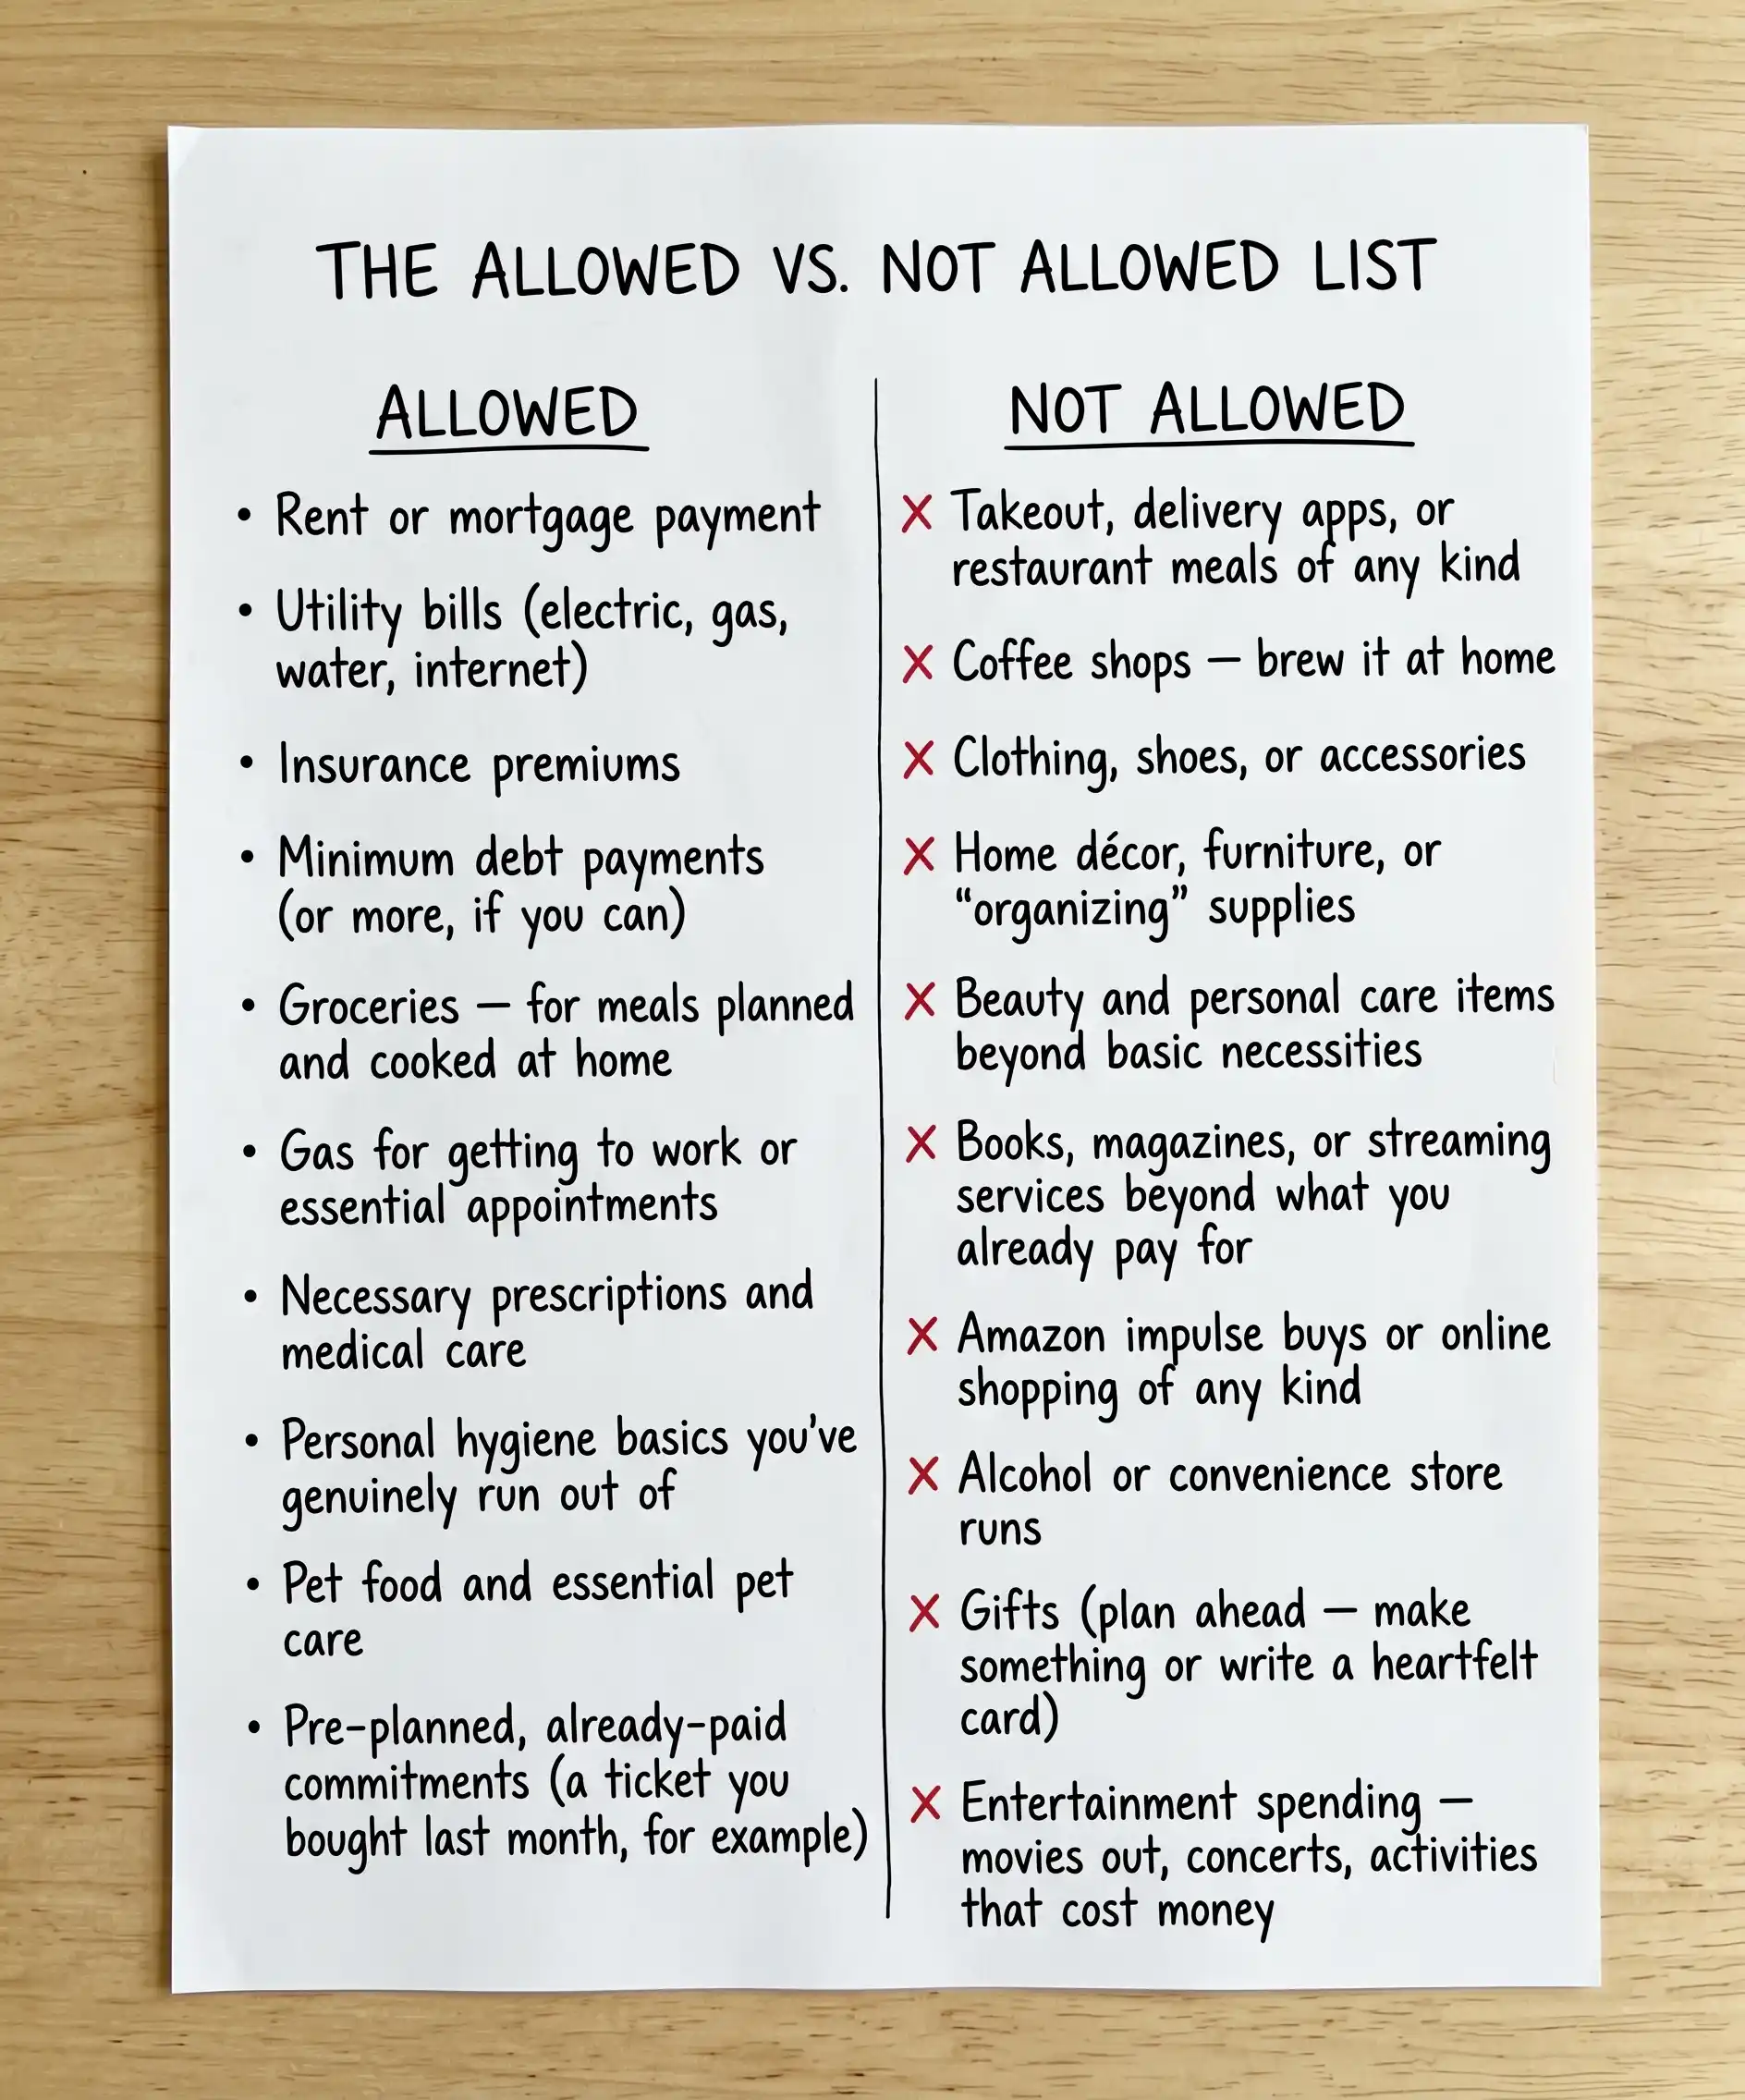 THE ALLOWED VS. NOT ALLOWED LIST
ALLOWED
• Rent or mortgage payment
• Utility bills (electric, gas,
water, internet)
• Insurance premiums
• Minimum debt payments
(or more, if you can)
• Groceries — for meals planned
and cooked at home
• Gas for getting to work or
essential appointments
• Necessary prescriptions and
medical care
• Personal hygiene basics you've
genuinely run out of
• Pet food and essential pet
care
• Pre-planned, already-paid
commitments (a ticket you
bought last month, for example)
NOT ALLOWED
✗ Takeout, delivery apps, or
restaurant meals of any kind
✗ Coffee shops — brew it at home
✗ Clothing, shoes, or accessories
✗ Home décor, furniture, or
“organizing” supplies
✗ Beauty and personal care items
beyond basic necessities
✗ Books, magazines, or streaming
services beyond what you
already pay for
✗ Amazon impulse buys or online
shopping of any kind
✗ Alcohol or convenience store
runs
✗ Gifts (plan ahead — make
something or write a heartfelt
card)
✗ Entertainment spending —
movies out, concerts, activities
that cost money